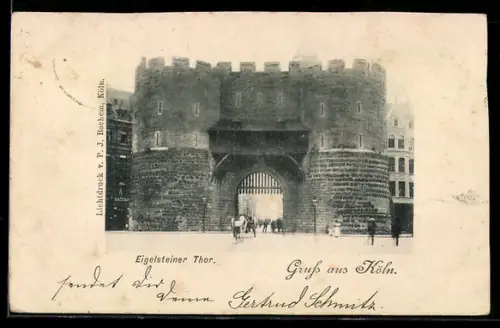 Lichtdruck v. P. J. Bachem, Köln.
Eigelsteiner Thor.
Gruß aus Köln.
sendet Dir
Deine Gertrud Schmitz.